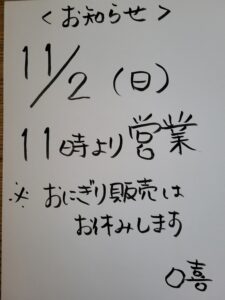 <お知らせ>
11/2(日)
11時より営業
※おにぎり販売は
お休みします
〇喜